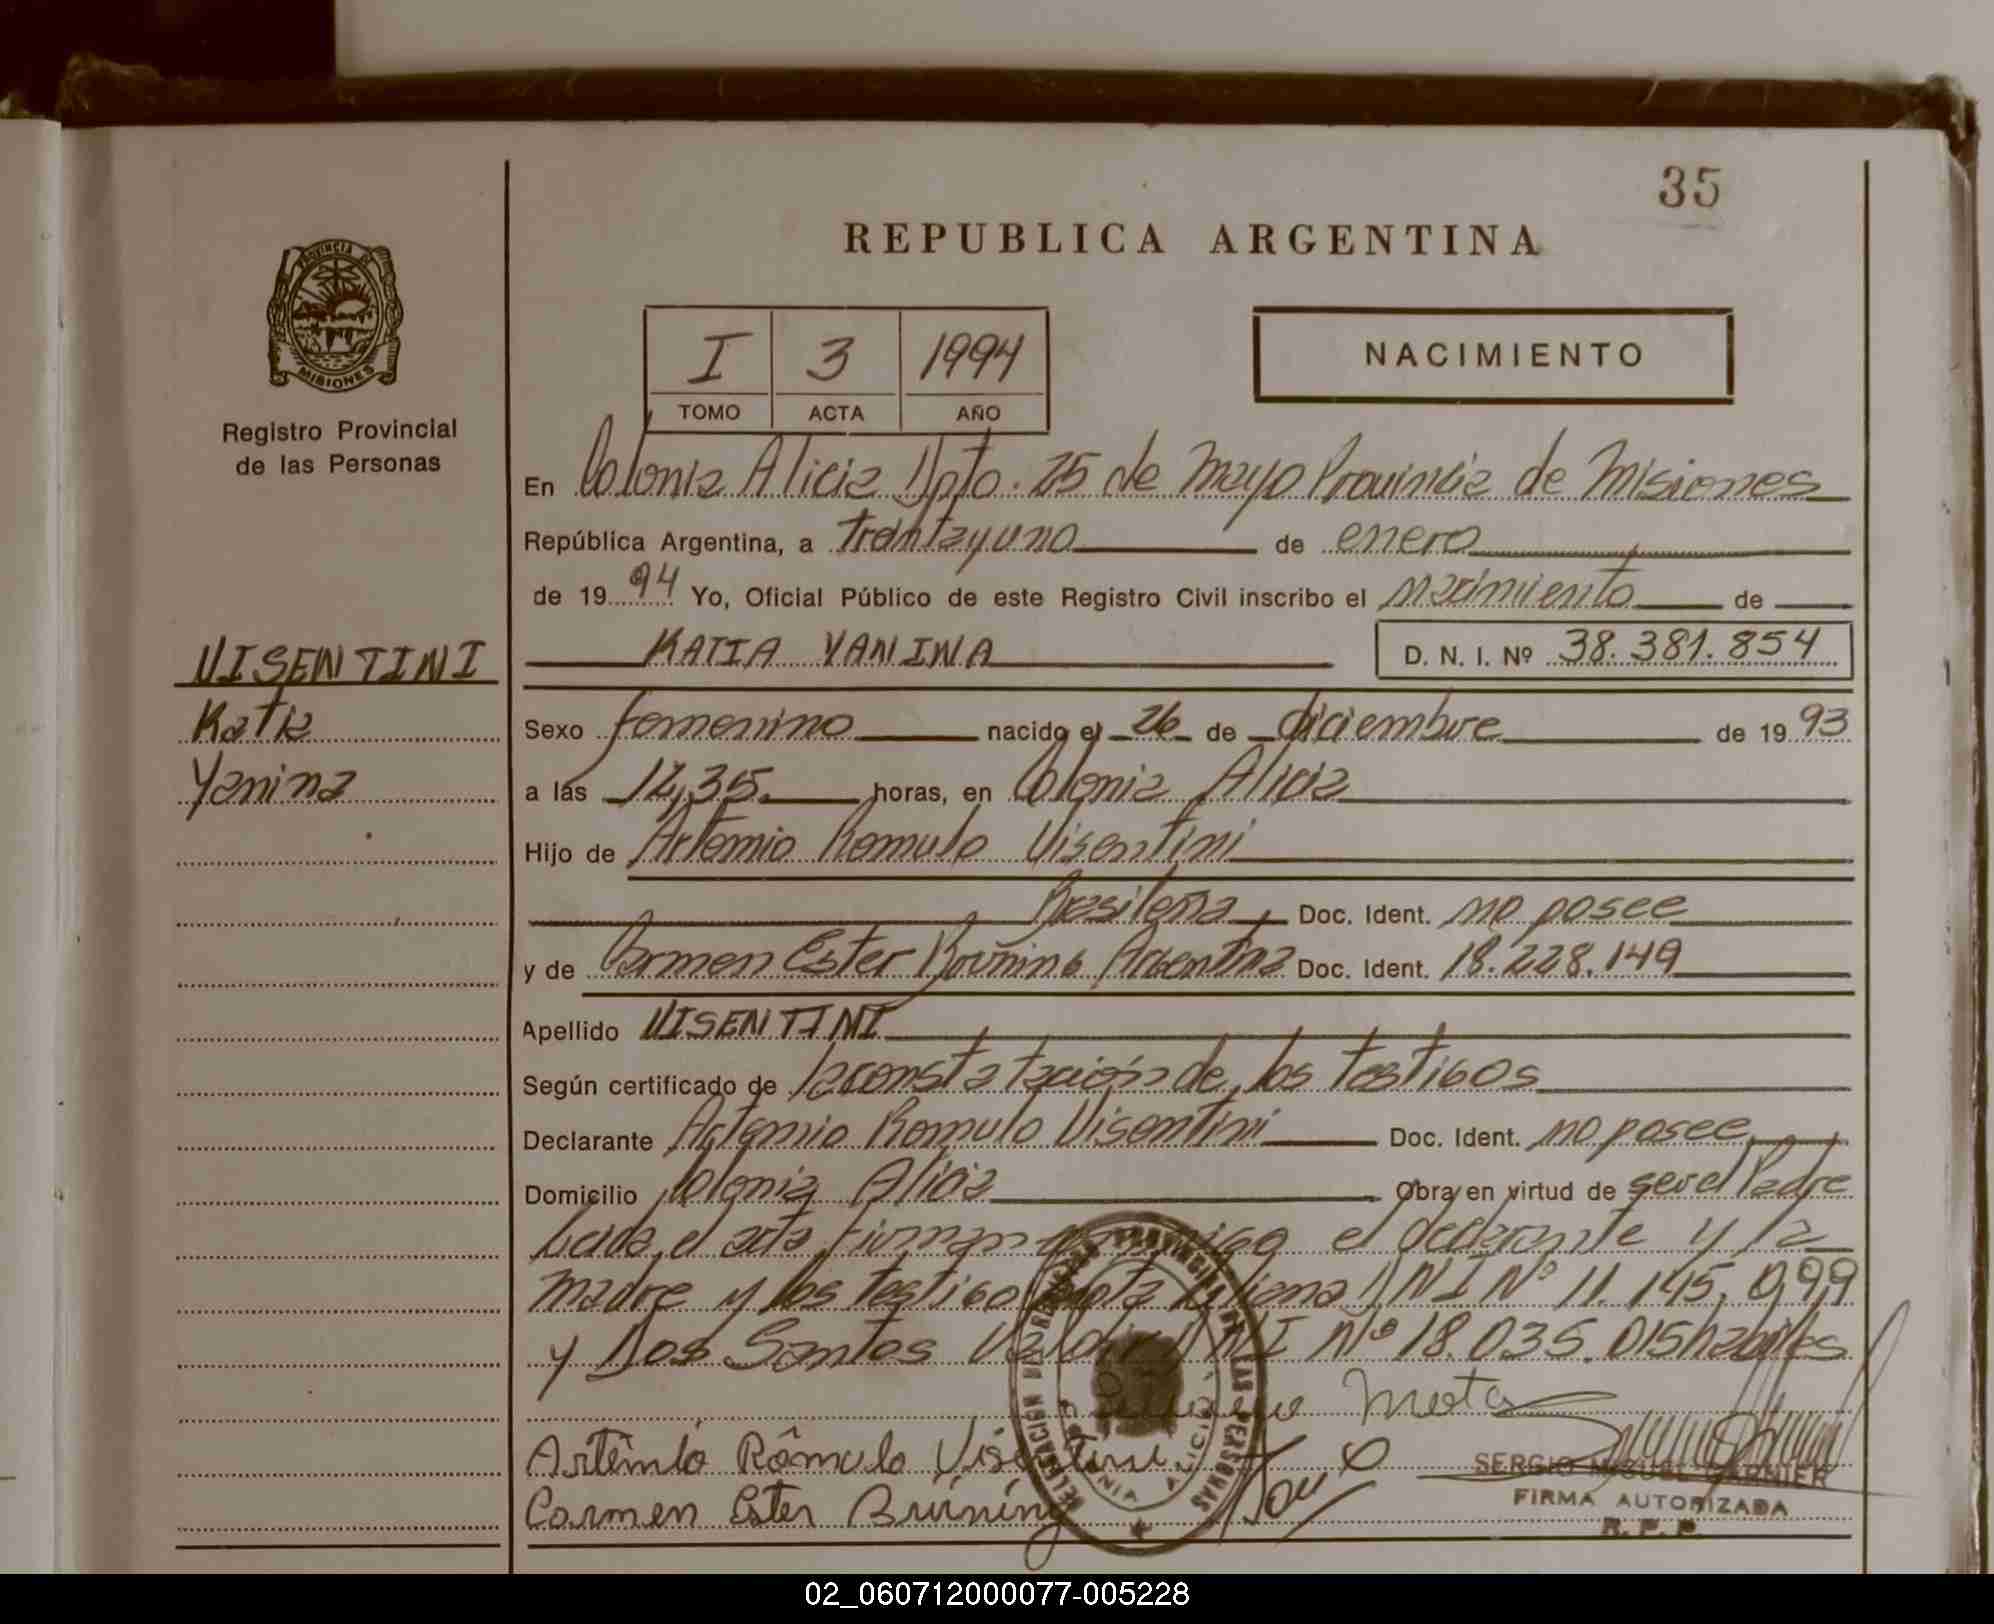 35
REPUBLICA ARGENTINA
PROVINCIA DE
MISIONES
Registro Provincial
de las Personas
I 3 1994
TOMO ACTA AÑO
NACIMIENTO
En Colonia Alicia Dpto. 25 de Mayo Provincia de Misiones
República Argentina, a trentayuno de enero
de 1994 Yo, Oficial Público de este Registro Civil inscribo el nacimiento de
KATIA YANINA D. N. I. Nº 38.381.854
VISENTINI
Katia
Yanina
Sexo femenino nacido el 26 de diciembre de 1993
a las 12,35. horas, en Colonia Alicia
Hijo de Artemio Romulo Visentini
Brasileña Doc. Ident. no posee
y de Carmen Ester Bruning Argentina Doc. Ident. 18.228.149
Apellido VISENTINI
Según certificado de la constatación de los testigos
Declarante Artemio Romulo Visentini Doc. Ident. no posee
Domicilio Colonia Alicia Obra en virtud de ser el Padre
Leida el acta firman el declarante y la
madre y los testigo Mota DNI Nº 11.145.099
y Dos Santos DNI Nº 18.035.015 habiles
Mota
Artêmio Rômulo Visentini
Carmen Ester Bruning
DELEGACIÓN DEL REGISTRO PROVINCIAL DE LAS PERSONAS
COLONIA ALICIA
SERGIO MIGUEL GARNIER
FIRMA AUTORIZADA
R. P. P.
02_060712000077-005228